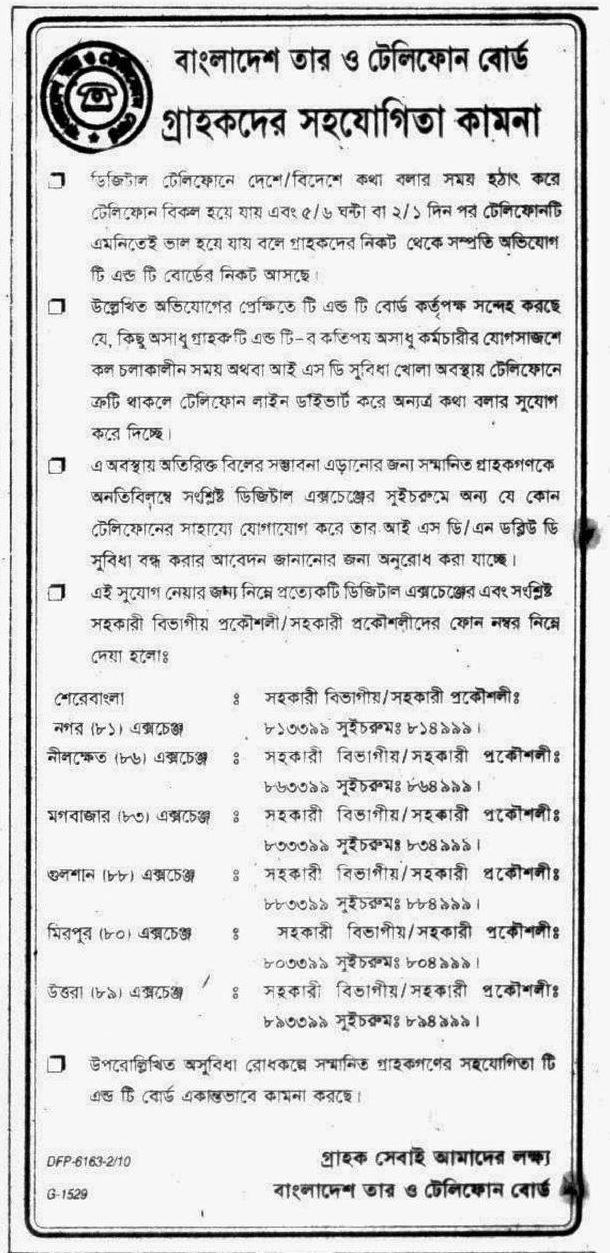 বাংলাদেশ তার ও টেলিফোন বোর্ড
গ্রাহকদের সহযোগিতা কামনা
ডিজিটাল টেলিফোনে দেশে/বিদেশে কথা বলার সময় হঠাৎ করে
টেলিফোন বিকল হয়ে যায় এবং ৫/৬ ঘন্টা বা ২/১ দিন পর টেলিফোনটি
এমনিতেই ভাল হয়ে যায় বলে গ্রাহকদের নিকট থেকে সম্প্রতি অভিযোগ
টি এন্ড টি বোর্ডের নিকট আসছে।
উল্লেখিত অভিযোগের প্রেক্ষিতে টি এন্ড টি বোর্ড কর্তৃপক্ষ সন্দেহ করছে
যে, কিছু অসাধু গ্রাহক টি এন্ড টি-র কতিপয় অসাধু কর্মচারীর যোগসাজশে
কল চলাকালীন সময় অথবা আই এস ডি সুবিধা খোলা অবস্থায় টেলিফোনে
ত্রুটি থাকলে টেলিফোন লাইন ডাইভার্ট করে অন্যত্র কথা বলার সুযোগ
করে দিচ্ছে।
এ অবস্থায় অতিরিক্ত বিলের সম্ভাবনা এড়ানোর জন্য সম্মানিত গ্রাহকগণকে
অনতিবিলম্বে সংশ্লিষ্ট ডিজিটাল এক্সচেঞ্জের সুইচরুমে অন্য যে কোন
টেলিফোনের সাহায্যে যোগাযোগ করে তার আই এস ডি/এন ডব্লিউ ডি
সুবিধা বন্ধ করার আবেদন জানানোর জন্য অনুরোধ করা যাচ্ছে।
এই সুযোগ নেয়ার জন্য নিম্নে প্রত্যেকটি ডিজিটাল এক্সচেঞ্জের এবং সংশ্লিষ্ট
সহকারী বিভাগীয় প্রকৌশলী/সহকারী প্রকৌশলীদের ফোন নম্বর নিম্নে
দেয়া হলোঃ
শেরেবাংলা ঃ সহকারী বিভাগীয়/সহকারী প্রকৌশলীঃ
নগর (৮১) এক্সচেঞ্জ ৮১৩৩৯৯ সুইচরুমঃ ৮১৪৯৯৯।
নীলক্ষেত (৮৬) এক্সচেঞ্জ ঃ সহকারী বিভাগীয়/সহকারী প্রকৌশলীঃ
৮৬৩৩৯৯ সুইচরুমঃ ৮৬৪৯৯৯।
মগবাজার (৮৩) এক্সচেঞ্জ ঃ সহকারী বিভাগীয়/সহকারী প্রকৌশলীঃ
৮৩৩৩৯৯ সুইচরুমঃ ৮৩৪৯৯৯।
গুলশান (৮৮) এক্সচেঞ্জ ঃ সহকারী বিভাগীয়/সহকারী প্রকৌশলীঃ
৮৮৩৩৯৯ সুইচরুমঃ ৮৮৪৯৯৯।
মিরপুর (৮০) এক্সচেঞ্জ ঃ সহকারী বিভাগীয়/সহকারী প্রকৌশলীঃ
৮০৩৩৯৯ সুইচরুমঃ ৮০৪৯৯৯।
উত্তরা (৮৯) এক্সচেঞ্জ ঃ সহকারী বিভাগীয়/সহকারী প্রকৌশলীঃ
৮৯৩৩৯৯ সুইচরুমঃ ৮৯৪৯৯৯।
উপরোল্লিখিত অসুবিধা রোধকল্পে সম্মানিত গ্রাহকগণের সহযোগিতা টি
এন্ড টি বোর্ড একান্তভাবে কামনা করছে।
DFP-6163-2/10 গ্রাহক সেবাই আমাদের লক্ষ্য
G-1529 বাংলাদেশ তার ও টেলিফোন বোর্ড